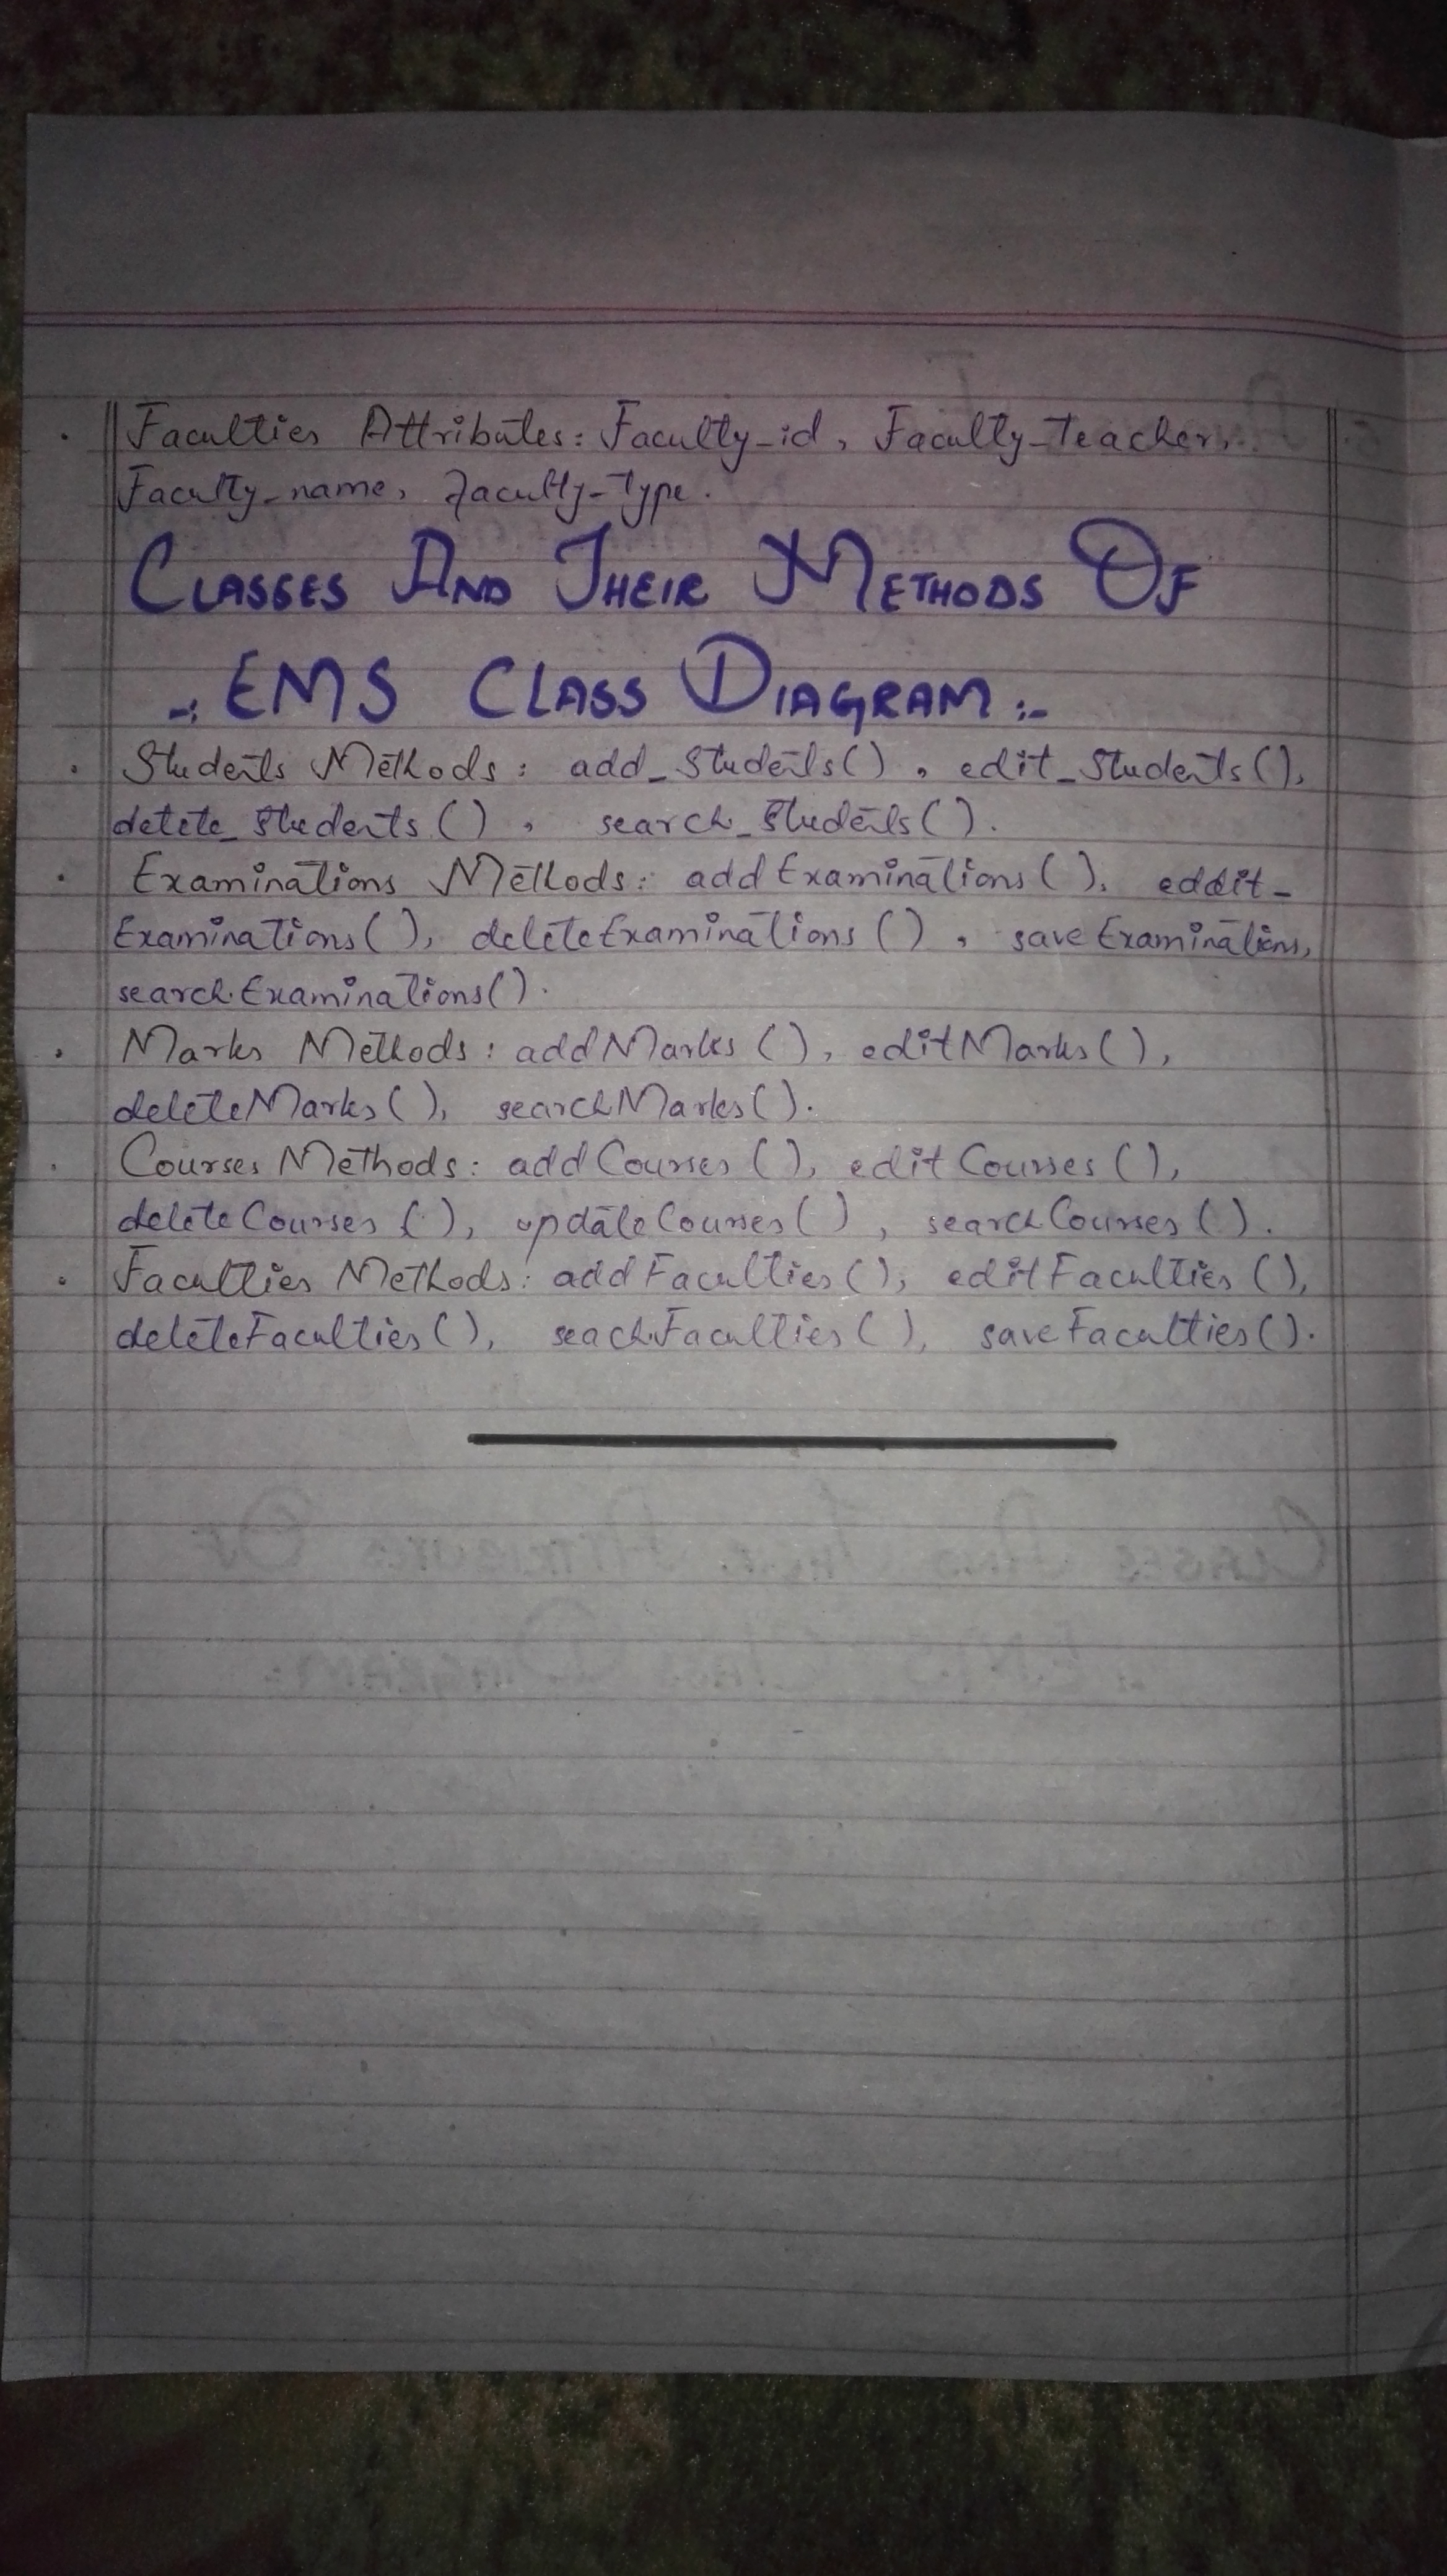 . Faculties Attributes: Faculty_id, Faculty_Teacher,
Faculty_name, Faculty_Type.
CLASSES AND THEIR METHODS OF
-: EMS CLASS DIAGRAM :-
. Students Methods: add_Students(), edit_Students(),
detete_Students(), search_Students().
. Examinations Methods: addExaminations(), eddit-
Examinations(), deleteExaminations(), saveExaminations,
searchExaminations().
. Marks Methods: addMarks(), editMarks(),
deleteMarks(), searchMarks().
. Courses Methods: addCourses(), editCourses(),
deleteCourses(), updateCourses(), searchCourses().
. Faculties Methods: addFaculties(), editFaculties(),
deleteFaculties(), seachFaculties(), saveFaculties().